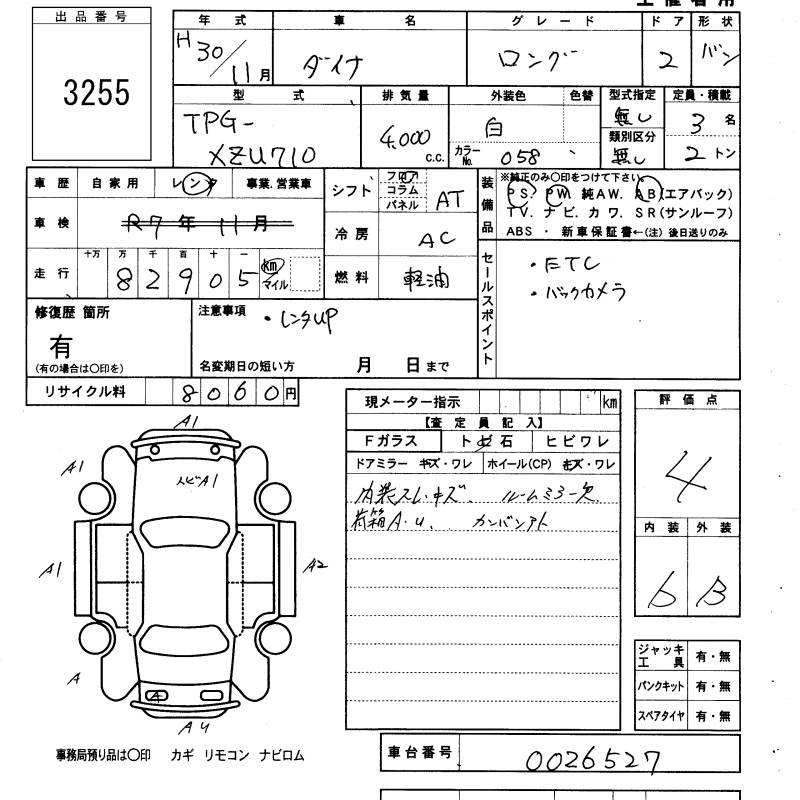 出品番号
3255
年式 車名 グレード ドア 形状
H30/11月 ダイナ ロング 2 バン
型式 排気量 外装色 色替 型式指定 定員・積載
TPG-XZU710 4,000c.c. 白 無し 3名
カラーNo. 058 類別区分 無し 2トン
車歴 自家用 レンタ 事業.営業車
車検 R7年11月
走行 十万 万 千 百 十 一
82905 km マイル
シフト フロア コラム パネル AT
冷房 AC
燃料 軽油
装備品 ※純正のみ○印をつけて下さい。
PS. PW. 純AW. AB(エアバック)
TV. ナビ. カワ. SR(サンルーフ)
ABS ・ 新車保証書←(注) 後日送りのみ
セールスポイント
・ETC
・バックカメラ
修復歴 箇所
有
(有の場合は○印を)
注意事項 ・レンタUP
名変期日の短い方 月 日まで
リサイクル料 8060円
現メーター指示 km
【査定員記入】
Fガラス トビ石 ヒビワレ
ドアミラー キズ・ワレ ホイール(CP) キズ・ワレ
内装スレ.キズ. ルームミラー欠
荷箱A.U. カンバンアト
評価点
4
内装 外装
b B
ジャッキ工具 有・無
パンクキット 有・無
スペアタイヤ 有・無
A1
A1
トビA1
A1
A2
A
A
AU
事務局預り品は○印 カギ リモコン ナビロム
車台番号 0026527